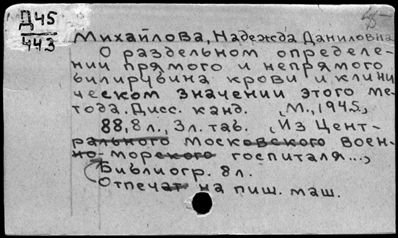 Д45
443
Михайлова, Надежда Даниловна
О раздельном определе-
нии прямого и непрямого
билирубина крови и клини
ческом значении этого ме-
тода. Дисс. канд. М., 1945,
88, 8 л., 3 л. таб. (Из Цент-
рального Московского воен-
но-морского госпиталя...)
Библиогр. 8 л.
Отпечат на пиш. маш.